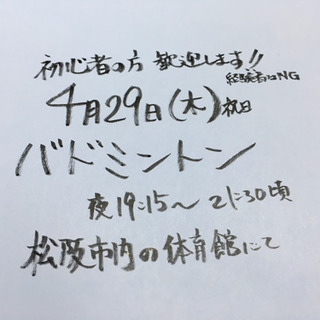 初心者の方 歓迎します!!
経験者はNG
4月29日(木)祝日
バドミントン
夜19:15〜21:30頃
松阪市内の体育館にて